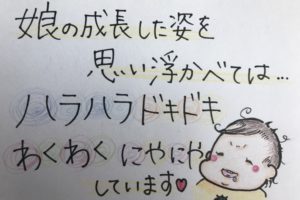 娘の成長した姿を
思い浮かべては…
ハラハラドキドキ
わくわくにやにや
しています♥